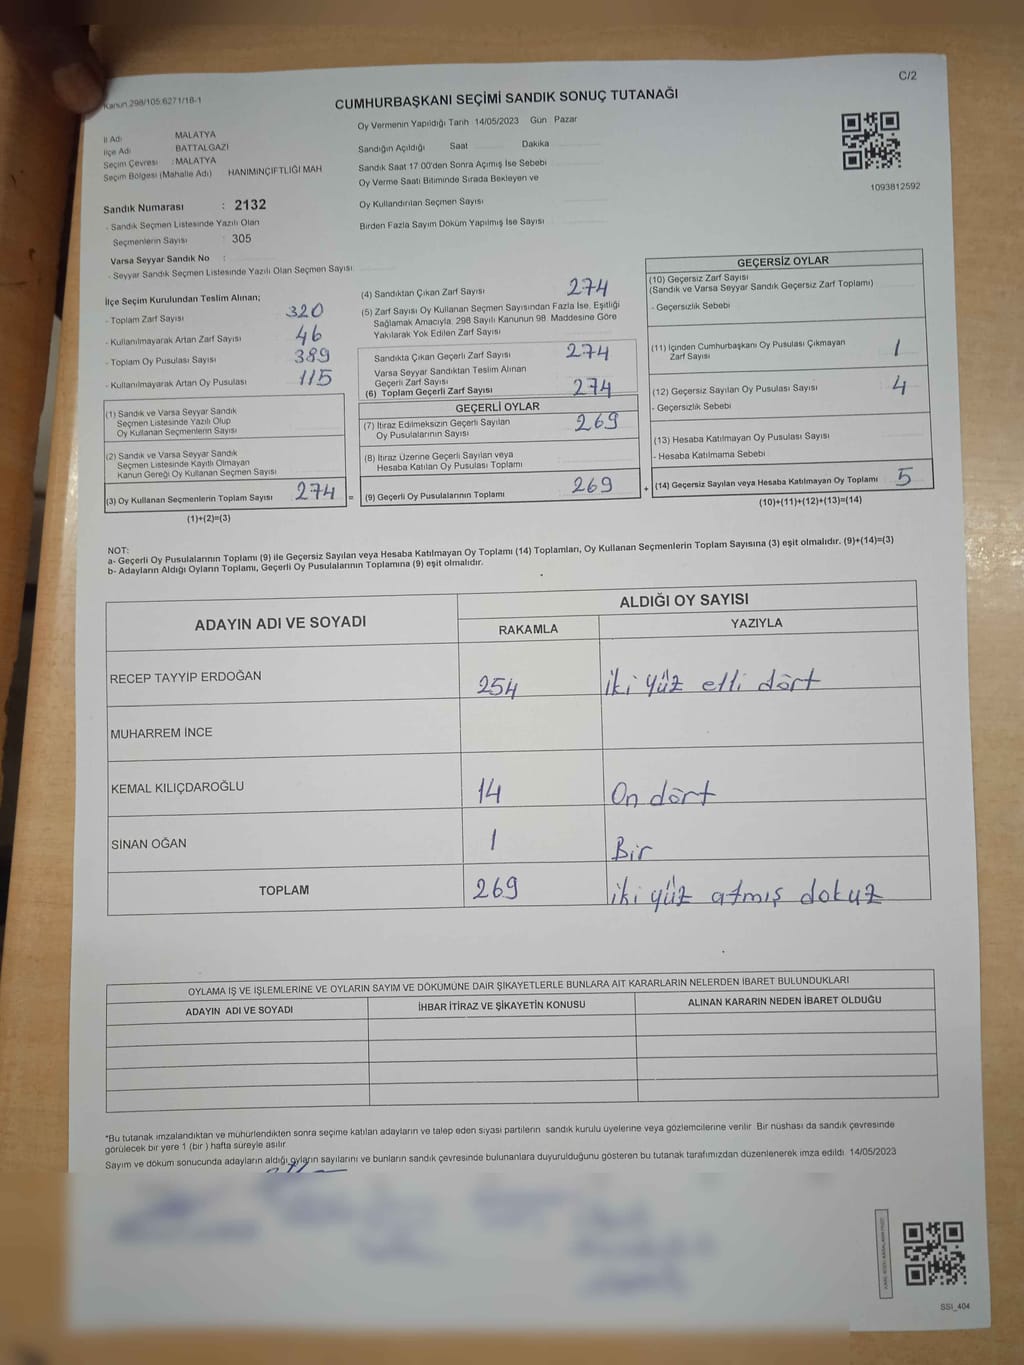 C/2
Kanun 298/105.6271/18-1
CUMHURBAŞKANI SEÇİMİ SANDIK SONUÇ TUTANAĞI
İl Adı MALATYA
İlçe Adı BATTALGAZİ
Seçim Çevresi : MALATYA
Seçim Bölgesi (Mahalle Adı) HANIMINÇIFTLIĞI MAH
Sandık Numarası : 2132
- Sandık Seçmen Listesinde Yazılı Olan
Seçmenlerin Sayısı : 305
Varsa Seyyar Sandık No :
- Seyyar Sandık Seçmen Listesinde Yazılı Olan Seçmen Sayısı
Oy Vermenin Yapıldığı Tarih 14/05/2023 Gün Pazar
Sandığın Açıldığı Saat Dakika
Sandık Saat 17 00'den Sonra Açımış İse Sebebi
Oy Verme Saati Bitiminde Sırada Bekleyen ve
Oy Kullandırılan Seçmen Sayısı
Birden Fazla Sayım Döküm Yapılmış İse Sayısı
1093812592
İlçe Seçim Kurulundan Teslim Alınan;
- Toplam Zarf Sayısı 320
- Kullanılmayarak Artan Zarf Sayısı 46
- Toplam Oy Pusulası Sayısı 389
- Kullanılmayarak Artan Oy Pusulası 115
(1) Sandık ve Varsa Seyyar Sandık
Seçmen Listesinde Yazılı Olup
Oy Kullanan Seçmenlerin Sayısı
(2) Sandık ve Varsa Seyyar Sandık
Seçmen Listesinde Kayıtlı Olmayan
Kanun Gereği Oy Kullanan Seçmen Sayısı
(3) Oy Kullanan Seçmenlerin Toplam Sayısı 274 =
(1)+(2)=(3)
(4) Sandıktan Çıkan Zarf Sayısı 274
(5) Zarf Sayısı Oy Kullanan Seçmen Sayısından Fazla İse, Eşitliği
Sağlamak Amacıyla, 298 Sayılı Kanunun 98. Maddesine Göre
Yakılarak Yok Edilen Zarf Sayısı
Sandıkta Çıkan Geçerli Zarf Sayısı 274
Varsa Seyyar Sandıktan Teslim Alınan
Geçerli Zarf Sayısı
(6) Toplam Geçerli Zarf Sayısı 274
GEÇERLİ OYLAR
(7) İtiraz Edilmeksizin Geçerli Sayılan
Oy Pusulalarının Sayısı 269
(8) İtiraz Üzerine Geçerli Sayılan veya
Hesaba Katılan Oy Pusulası Toplamı
(9) Geçerli Oy Pusulalarının Toplamı 269 +
GEÇERSİZ OYLAR
(10) Geçersiz Zarf Sayısı
(Sandık ve Varsa Seyyar Sandık Geçersiz Zarf Toplamı)
- Geçersizlik Sebebi
(11) İçinden Cumhurbaşkanı Oy Pusulası Çıkmayan
Zarf Sayısı 1
(12) Geçersiz Sayılan Oy Pusulası Sayısı 4
- Geçersizlik Sebebi
(13) Hesaba Katılmayan Oy Pusulası Sayısı
- Hesaba Katılmama Sebebi
(14) Geçersiz Sayılan veya Hesaba Katılmayan Oy Toplamı 5
(10)+(11)+(12)+(13)=(14)
NOT:
a- Geçerli Oy Pusulalarının Toplamı (9) ile Geçersiz Sayılan veya Hesaba Katılmayan Oy Toplamı (14) Toplamları, Oy Kullanan Seçmenlerin Toplam Sayısına (3) eşit olmalıdır. (9)+(14)=(3)
b- Adayların Aldığı Oyların Toplamı, Geçerli Oy Pusulalarının Toplamına (9) eşit olmalıdır.
ADAYIN ADI VE SOYADI ALDIĞI OY SAYISI
RAKAMLA YAZIYLA
RECEP TAYYİP ERDOĞAN 254 iki yüz elli dört
MUHARREM İNCE
KEMAL KILIÇDAROĞLU 14 On dört
SİNAN OĞAN 1 Bir
TOPLAM 269 iki yüz atmış dokuz
OYLAMA İŞ VE İŞLEMLERİNE VE OYLARIN SAYIM VE DÖKÜMÜNE DAİR ŞİKAYETLERLE BUNLARA AİT KARARLARIN NELERDEN İBARET BULUNDUKLARI
ADAYIN ADI VE SOYADI İHBAR İTİRAZ VE ŞİKAYETİN KONUSU ALINAN KARARIN NEDEN İBARET OLDUĞU
*Bu tutanak imzalandıktan ve mühürlendikten sonra seçime katılan adayların ve talep eden siyasi partilerin sandık kurulu üyelerine veya gözlemcilerine verilir. Bir nüshası da sandık çevresinde
görülecek bir yere 1 (bir ) hafta süreyle asılır
Sayım ve döküm sonucunda adayların aldığı oyların sayılarını ve bunların sandık çevresinde bulunanlara duyurulduğunu gösteren bu tutanak tarafımızdan düzenlenerek imza edildi. 14/05/2023
SSI_404